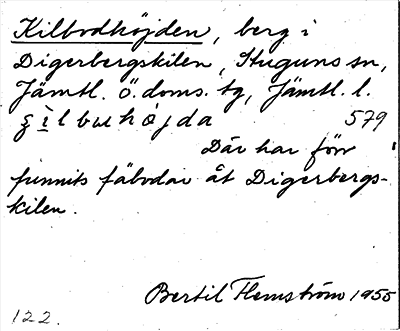 Kilbodhöjden, berg i
Digerbergskilen, Stuguns sn,
Jämtl. ö. doms. tg, Jämtl. l.
ʂìlbuhøjda 579
Där har förr
funnits fäbodar åt Digerbergs-
kilen.
Bertil Flemström 1955
122.